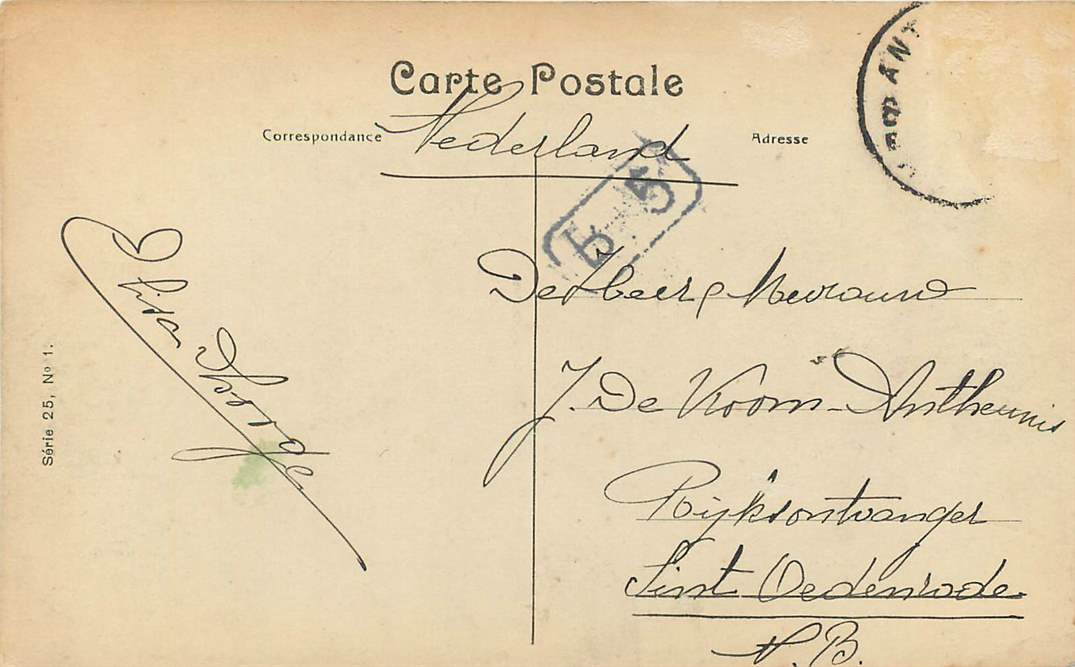 Carte Postale
Correspondance
Adresse
Nederland
b 5
De Heer & Mevrouw
J. De Kroon-Antheunis
Rijksontvanger
Sint Oedenrode
N.B.
Série 25, No 1.